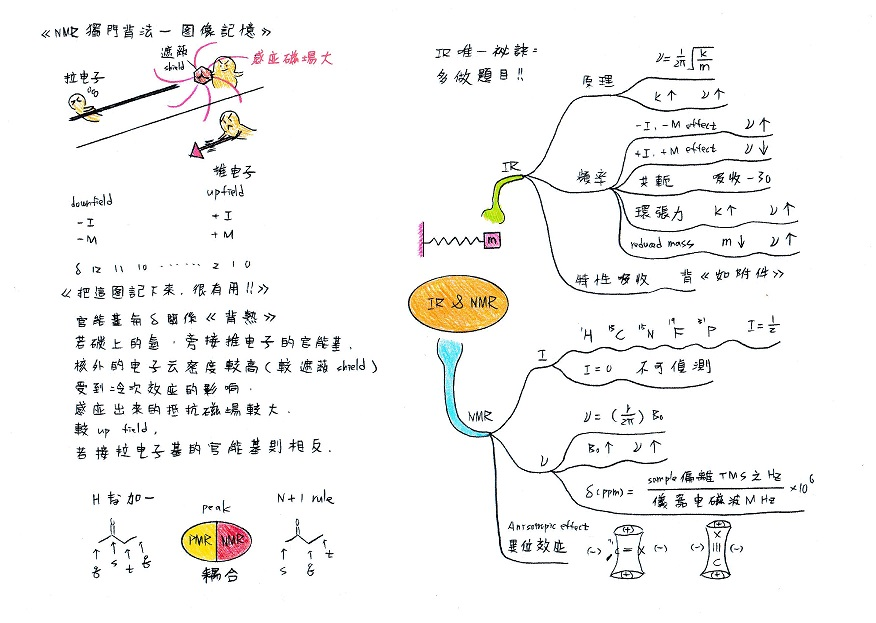 《NMR 獨門背法－圖像記憶》
遮蔽
shield
感应磁場大
拉电子
推电子
downfield
upfield
-I
+I
-M
+M
δ 12 11 10 ······ 2 1 0
《把這图記下來，很有用!!》
官能基與δ關係《背熟》
若碳上的氫，旁接推电子的官能基，
核外的电子云密度較高(較遮蔽 shield)
受到冷次效应的影响，
感应出來的抵抗磁場較大，
較 up field，
若接拉电子基的官能基則相反．
H 与加一
peak
N+1 rule
O
O
PMR
NMR
q s t q
s q t
耦合
IR 唯一祕訣：
多做題目!!
IR
原理
ν=1/2π √k/m
k↑ ν↑
頻率
-I, -M effect ν↑
+I, +M effect ν↓
共軛 吸收-30
環張力 k↑ ν↑
reduced mass m↓ ν↑
特性吸收 背《如附件》
m
IR & NMR
NMR
I
¹H ¹³C ¹⁵N ¹⁹F ³¹P I=1/2
I=0 不可偵測
ν
ν=(γ/2π)B₀
B₀↑ ν↑
δ(ppm)= sample偏離TMS之Hz / 儀器电磁波MHz ×10⁶
Anisotropic effect
異位效应
(-) C=X (-)
(+)
(+)
(-) X≡C (-)
(+)
(+)